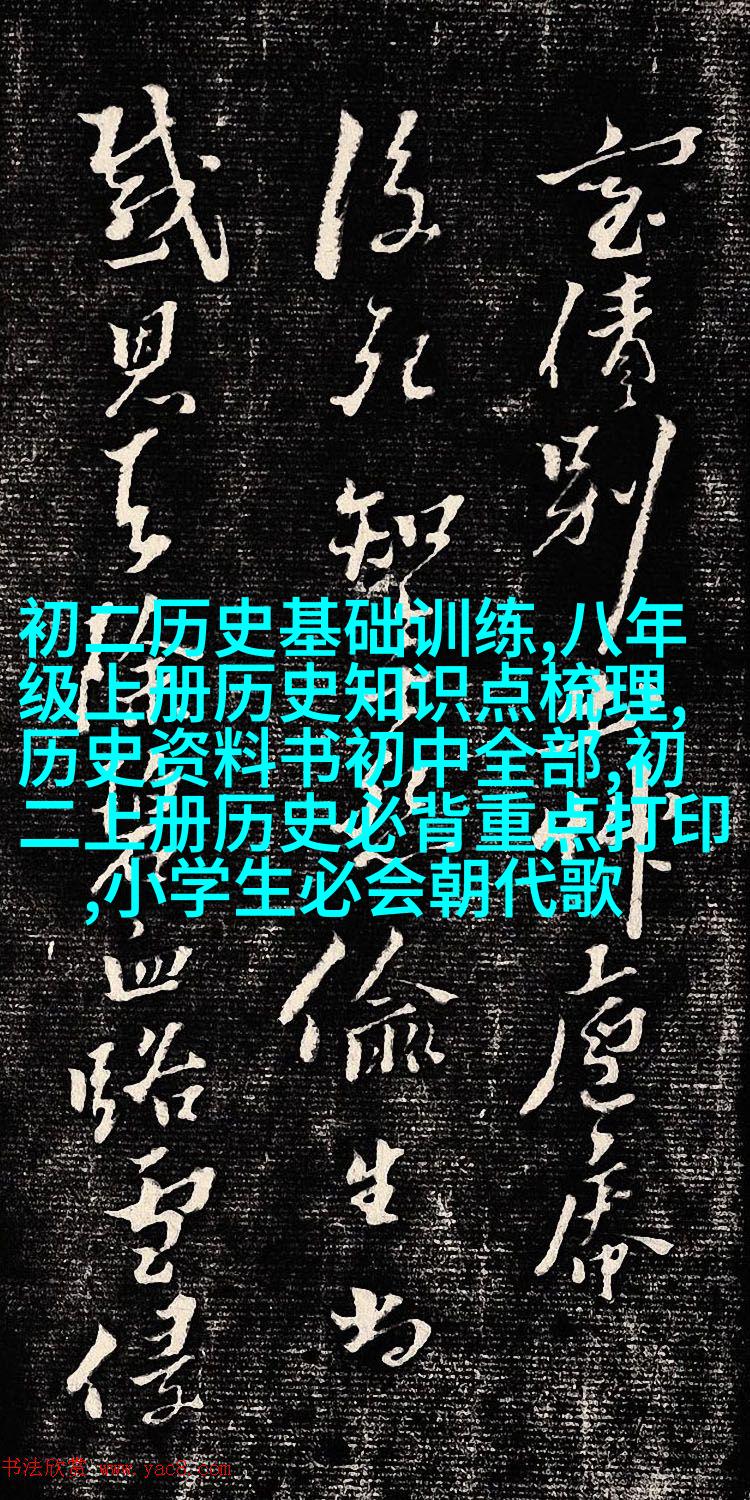 初二历史基础训练,八年
级上册历史知识点梳理,
历史资料书初中全部,初
二上册历史必背重点打印
,小学生必会朝代歌
倩别
後死知偷生尚
感恩血路雪侵
书法欣赏 www.yac8.com